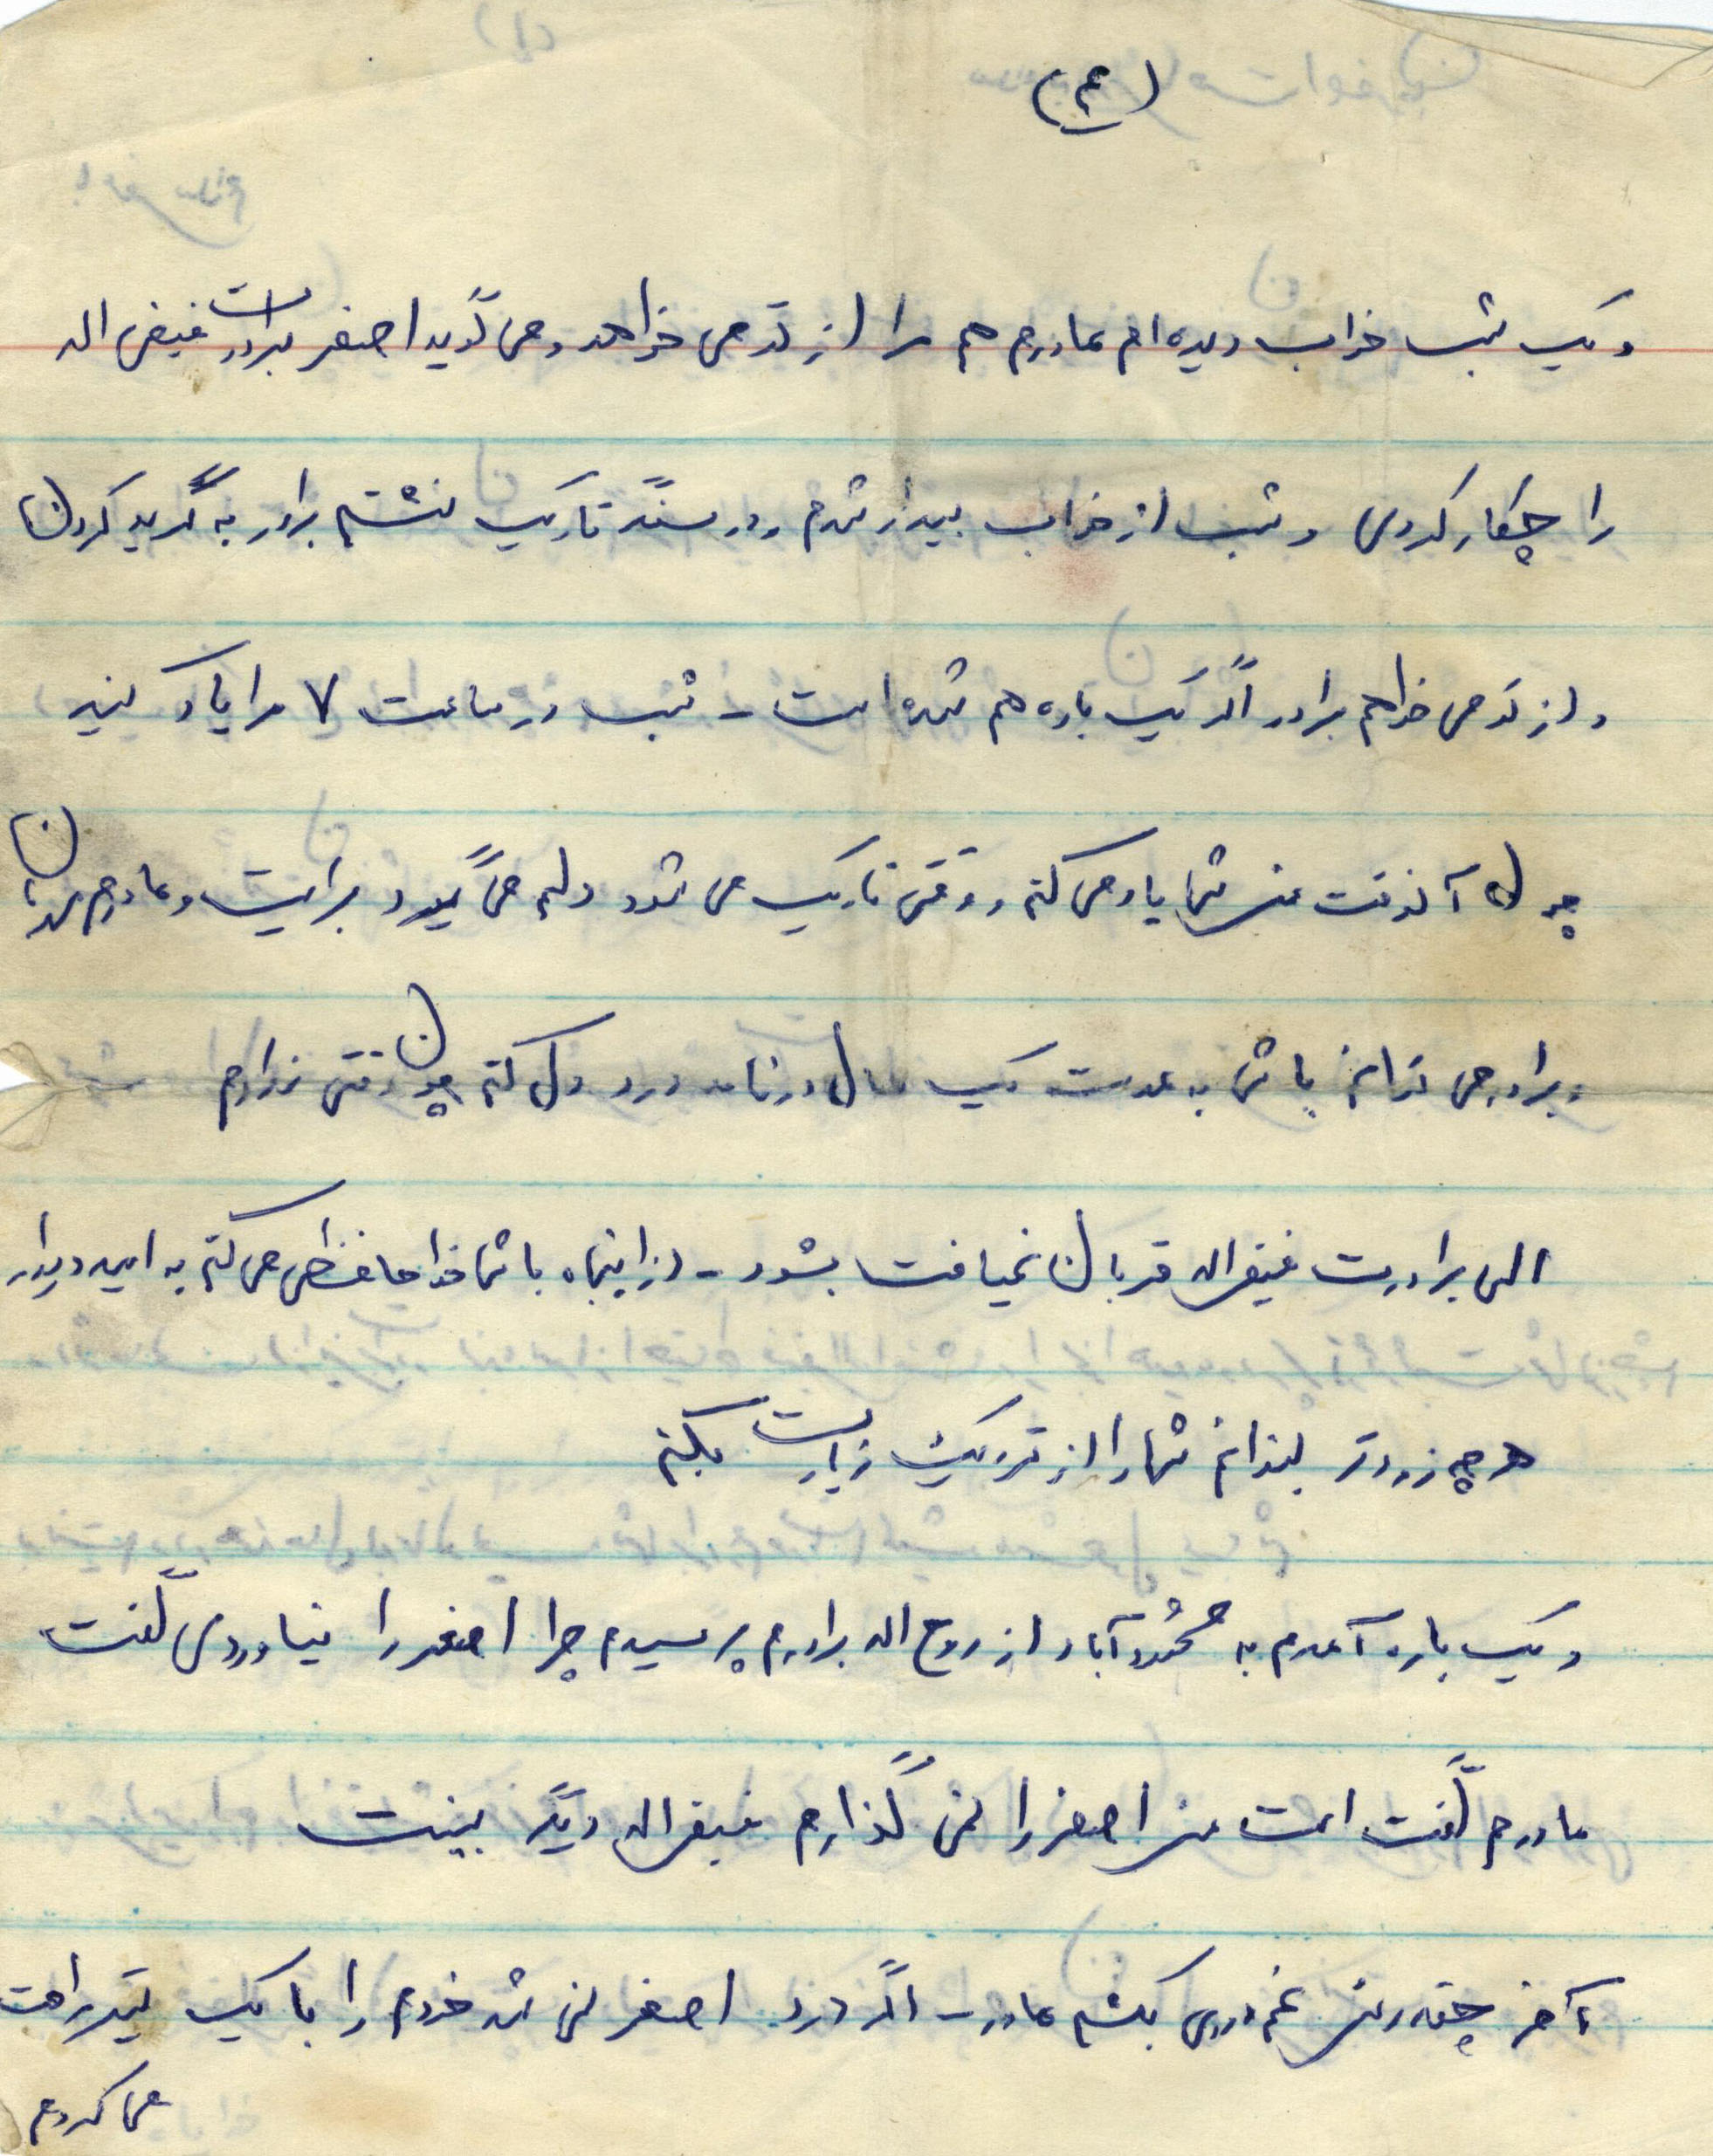 (۴)
و یک شب خواب دیده ام مادرم هم مرا از تو می خواهد و می گوید اصغر برادرت فیض اله
را چکار کردی و شب از خواب بیدار شدم و در سنگر تاریک نشستم برادر به گریه کردن
و از تو می خواهم برادر اگر یک باره هم شده است - شب در ساعت ۷ مرا یاد کنید
چون آنوقت من شما یاد می کنم و وقتی تاریک می شود دلم می گیرد برایت و مادرم
و برادر می توانم با شما به مدت یک سال در نامه درد دل کنم چون وقتی ندارم
الهی برادرت فیض اله قربان نمیافت بشود - از اینجا با شما خداحافظی می کنم به امید دیدار
هر چه زودتر بتوانم شما را از نزدیک زیارت بکنم
و یک باره آمدم به محمودآباد از روح اله برادرم پرسیدم چرا اصغر را نیاوردی گفت
مادرم گفت است من اصغر را نمی گذارم فیض اله دیگر ببینت
آخر چقدر من غم دوری بکشم مادر - اگر درد اصغر نمی شد خودم را با یک تیر راحت
می کردم